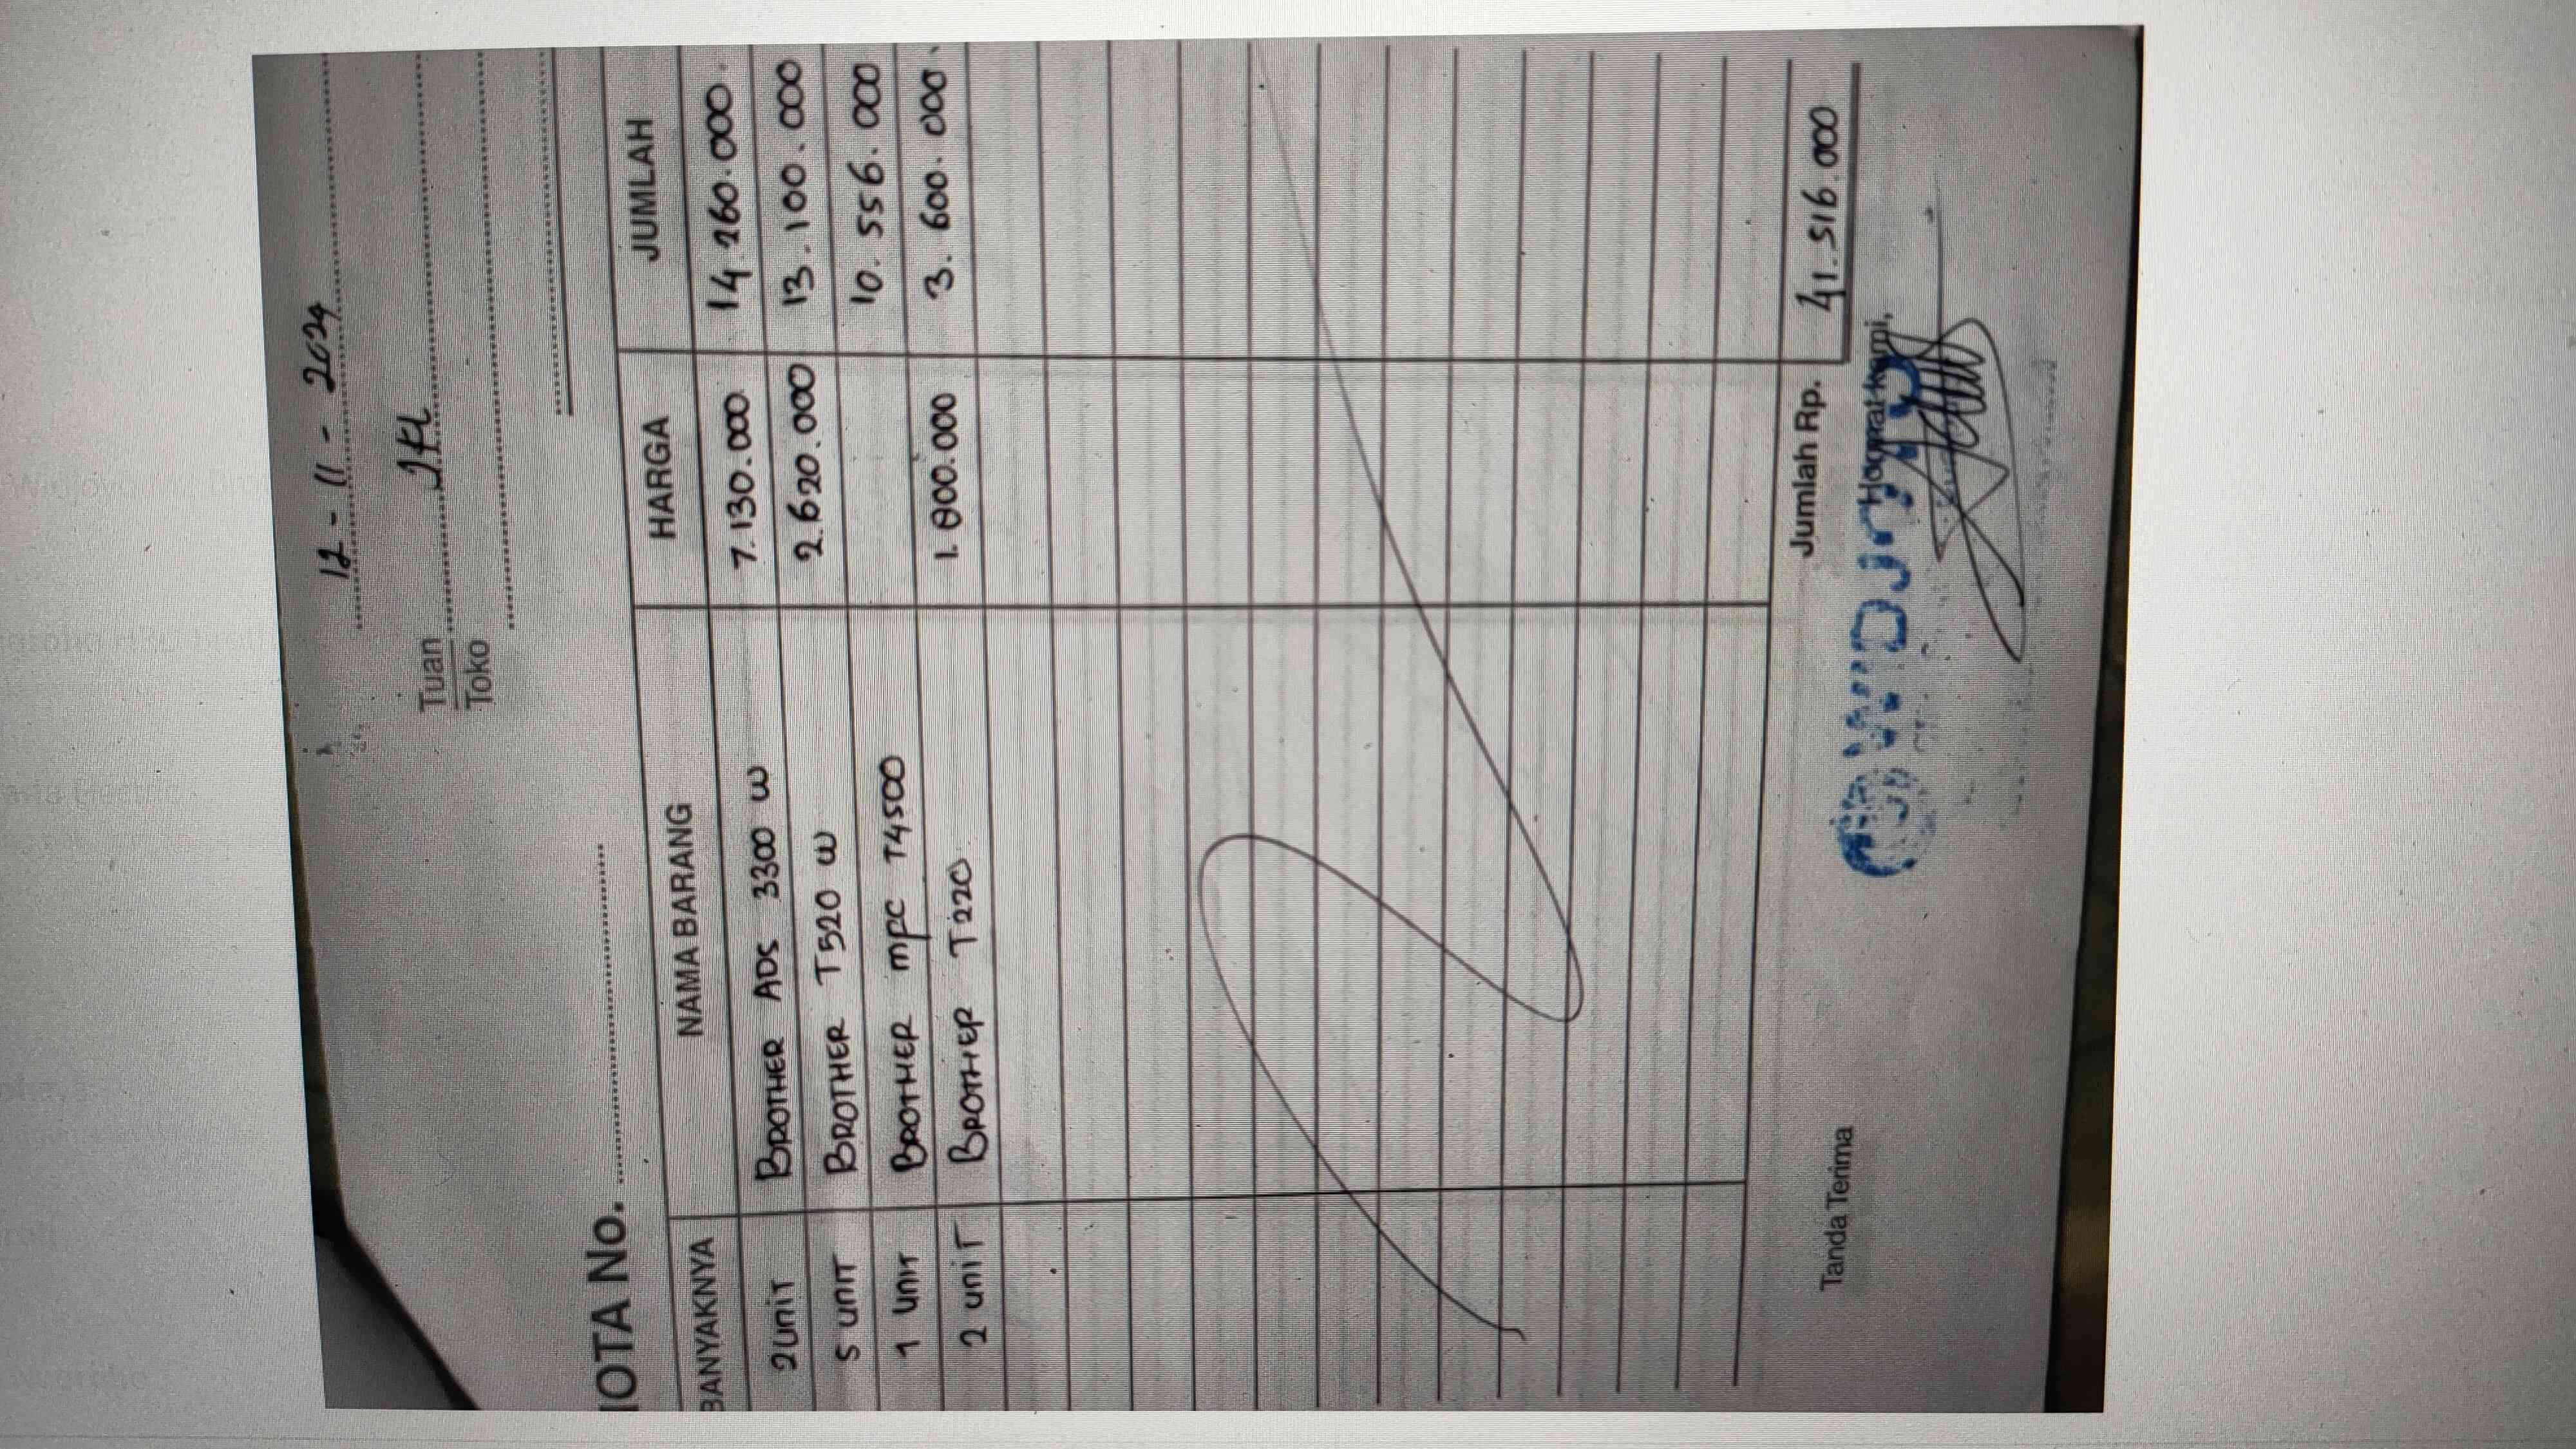 12 - 11 - 2024
Tuan
Toko
NOTA No.
BANYAKNYA NAMA BARANG HARGA JUMLAH
2 UNIT BROTHER ADS 3300 W 7.130.000 14.260.000.
5 UNIT BROTHER T520 W 2.620.000 13.100.000
1 UNIT BROTHER MFC T4500 10.556.000
2 UNIT BROTHER T220 1.800.000 3.600.000.
Jumlah Rp. 41.516.000
Tanda Terima Hormat kami,